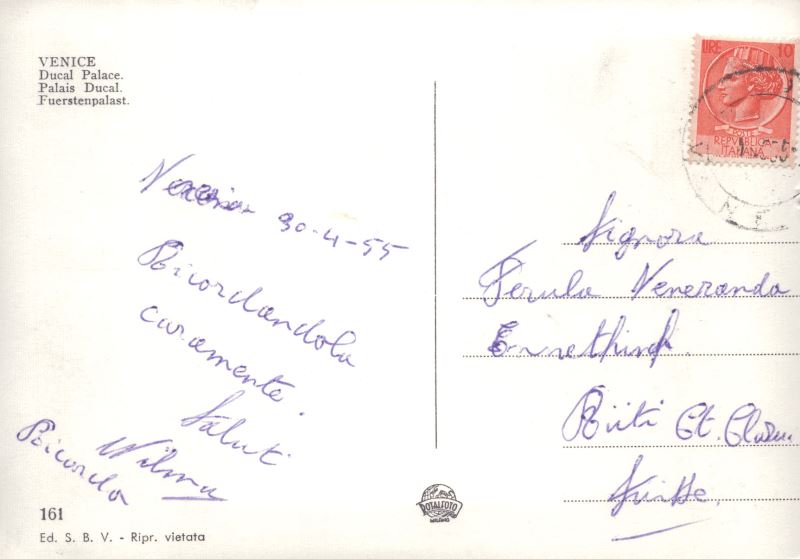 VENICE
Ducal Palace.
Palais Ducal.
Fuerstenpalast.
LIRE 10
POSTE
REPVBBLICA
ITALIANA
30-4-55
Ricordandola
caramente.
Saluti
Wilma
Ricorda
Signora
Ferula Veneranda
Rüti Ct. Glarus
Suisse.
161
Ed. S. B. V. - Ripr. vietata
ROTALFOTO
MILANO